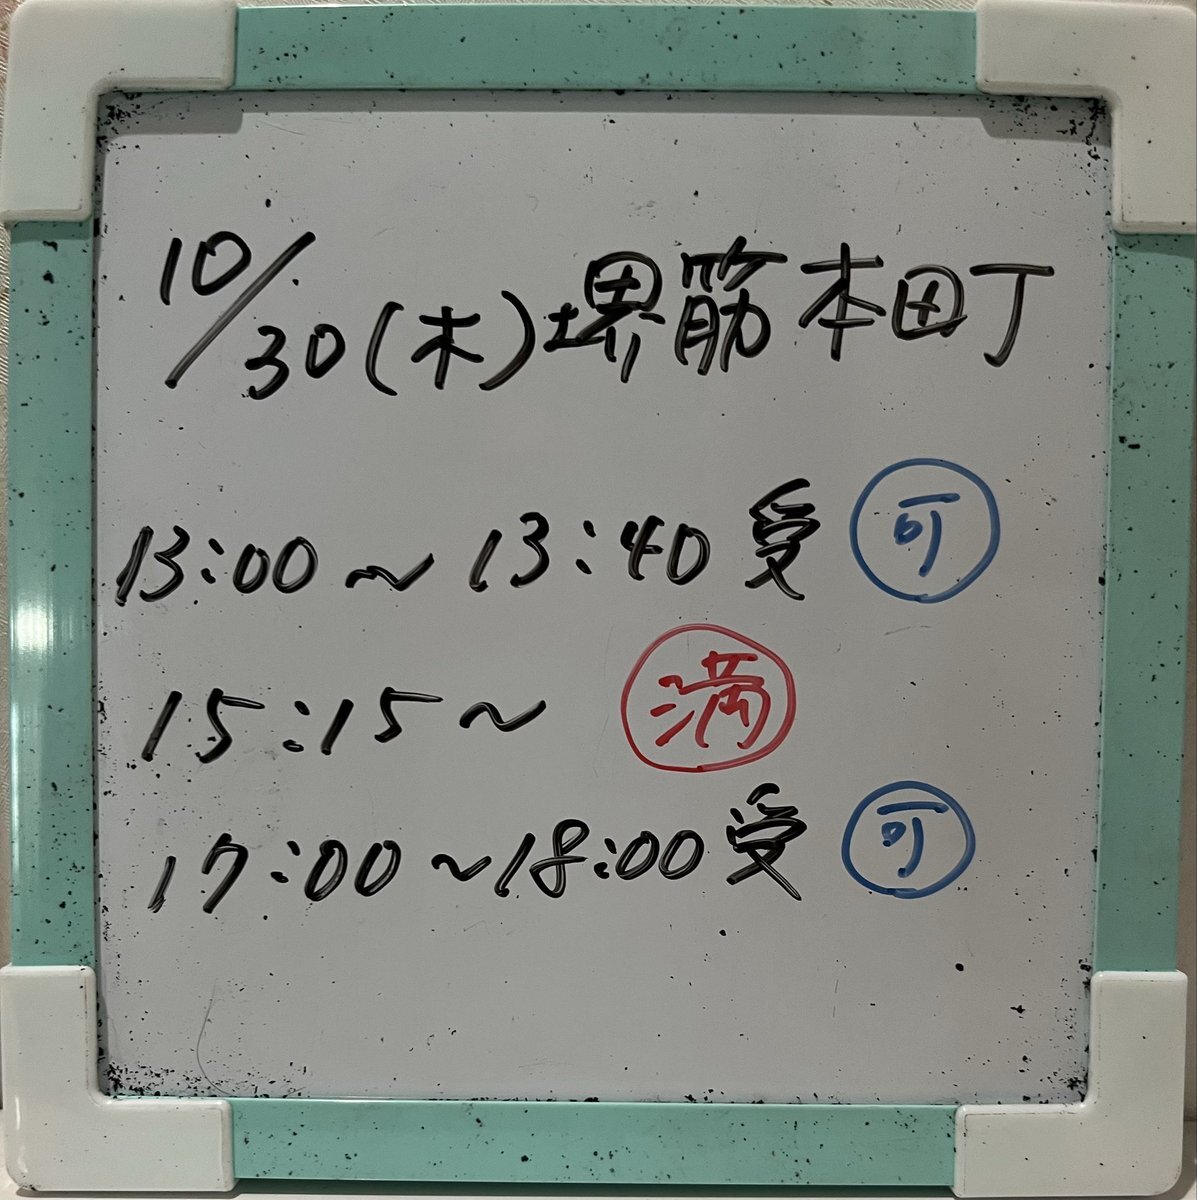 10/30(木)堺筋本町
13:00～13:40受 可
15:15～ 満
17:00～18:00受 可